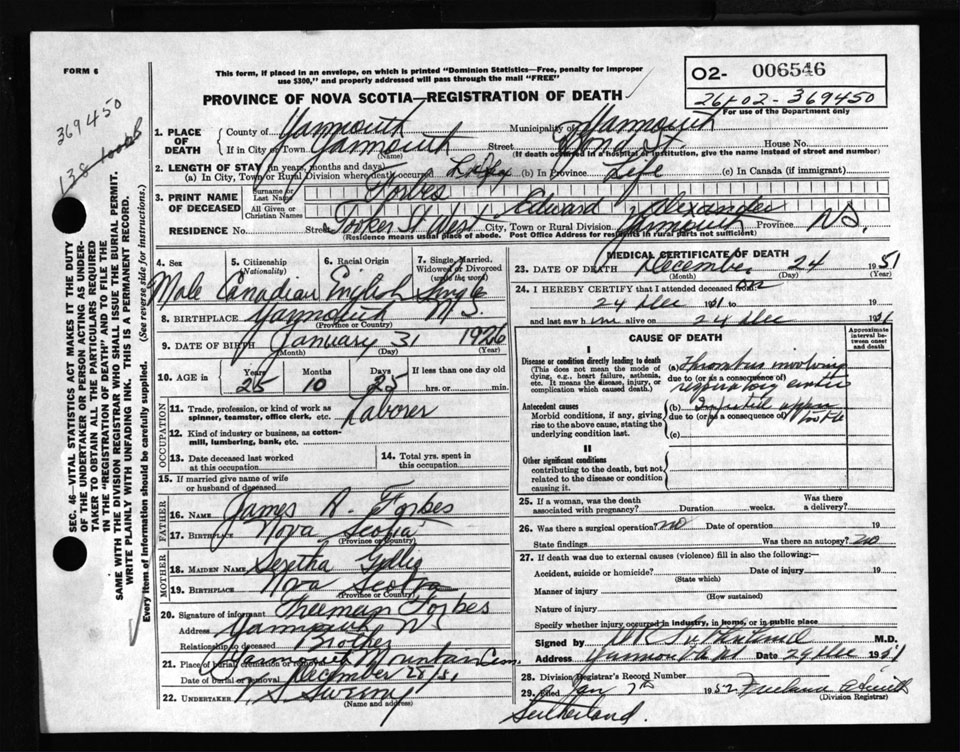 FORM 6
This form, if placed in an envelope, on which is printed "Dominion Statistics—Free, penalty for improper
use $300," and properly addressed will pass through the mail "FREE"
O2- 006546
26-02-369450
For use of the Department only
PROVINCE OF NOVA SCOTIA—REGISTRATION OF DEATH
369450
138
1. PLACE OF DEATH
County of Yarmouth Municipality of Yarmouth
If in City or Town Yarmouth Street St. House No.
(Name) (If death occurred in a hospital or institution, give the name instead of street and number)
2. LENGTH OF STAY (in years, months and days)
(a) In City, Town or Rural Division where death occurred Life (b) In Province Life (c) In Canada (if immigrant)
3. PRINT NAME OF DECEASED
Surname or Last Name Forbes
All Given or Christian Names Edward Alexander
RESIDENCE No. Street Tooker St West City, Town or Rural Division Yarmouth Province N.S.
(Residence means usual place of abode. Post Office Address for residents in rural parts not sufficient)
SEC. 46—VITAL STATISTICS ACT MAKES IT THE DUTY
OF THE UNDERTAKER OR PERSON ACTING AS UNDER-
TAKER TO OBTAIN ALL THE PARTICULARS REQUIRED
IN THE "REGISTRATION OF DEATH" AND TO FILE THE
SAME WITH THE DIVISION REGISTRAR WHO SHALL ISSUE THE BURIAL PERMIT.
WRITE PLAINLY WITH UNFADING INK. THIS IS A PERMANENT RECORD.
Every item of Information should be carefully supplied. (See reverse side for instructions.)
4. Sex
5. Citizenship (Nationality)
6. Racial Origin
7. Single, Married, Widowed or Divorced (write the word)
Male Canadian English Single
8. BIRTHPLACE Yarmouth N.S.
(Province or Country)
9. DATE OF BIRTH January 31 1926
(Month) (Day) (Year)
10. AGE in Years Months Days If less than one day old
25 10 25 hrs. or min.
OCCUPATION
11. Trade, profession, or kind of work as
spinner, teamster, office clerk, etc. Laborer
12. Kind of industry or business, as cotton-
mill, lumbering, bank, etc.
13. Date deceased last worked
at this occupation
14. Total yrs. spent in
this occupation
15. If married give name of wife
or husband of deceased
FATHER
16. NAME James R. Forbes
17. BIRTHPLACE Nova Scotia
(Province or Country)
MOTHER
18. MAIDEN NAME
19. BIRTHPLACE Nova Scotia
(Province or Country)
20. Signature of informant Freeman Forbes
Address Yarmouth N.S.
Relationship to deceased Brother
21. Place of burial, cremation or removal Mountain Cem.
Date of burial or removal December 28/51
22. UNDERTAKER Sweeny
(Name and address)
MEDICAL CERTIFICATE OF DEATH
23. DATE OF DEATH December 24 1951
(Month) (Day) (Year)
24. I HEREBY CERTIFY that I attended deceased from on
24 Dec 1951 to 19
and last saw him alive on 24 Dec 1951
CAUSE OF DEATH
Approximate interval between onset and death
I
Disease or condition directly leading to death
(This does not mean the mode of
dying, e.g., heart failure, asthenia,
etc. It means the disease, injury, or
complication which caused death.)
(a) Thrombus involving
due to (or as a consequence of)
respiratory center
Antecedent causes
Morbid conditions, if any, giving
rise to the above cause, stating the
underlying condition last.
(b) Infected upper
due to (or as a consequence of) tooth
(c)
II
Other significant conditions
contributing to the death, but not
related to the disease or condition
causing it.
25. If a woman, was the death
associated with pregnancy? Duration weeks. Was there a delivery?
26. Was there a surgical operation? no Date of operation 19
State findings Was there an autopsy? no
27. If death was due to external causes (violence) fill in also the following:—
Accident, suicide or homicide? Date of injury 19
(State which)
Manner of injury
(How sustained)
Nature of injury
Specify whether injury occurred in industry, in home, or in public place
Signed by M.D.
Address Yarmouth NS Date 29 Dec 1951
28. Division Registrar's Record Number
29. Filed Jan 7th 1952
(Division Registrar)
Sutherland.